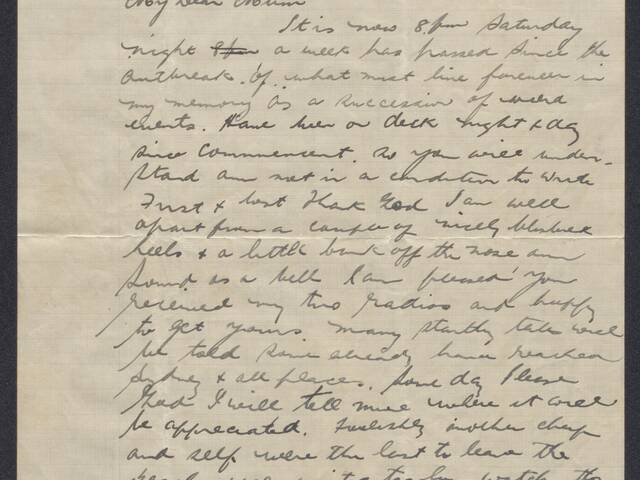 My Dear Mum
It is now 8. pm Saturday
night a week has passed since the
outbreak. of. what must live forever in
my memory as a succession of weird
events. Have been on deck night & day
since commencement. so you will under-
stand am not in a condition to write
First & last Thank God I am well
apart from a couple of nicely blistered
heels & a little bark off the nose am
sound. as a bell I am pleased you
received my two radios and happy
to get yours many startling tales will
be told some already have reached
Sydney & all places. Some day Please
God I will tell mine where it will
be appreciated. another chap
and self were the last to leave the
watch the